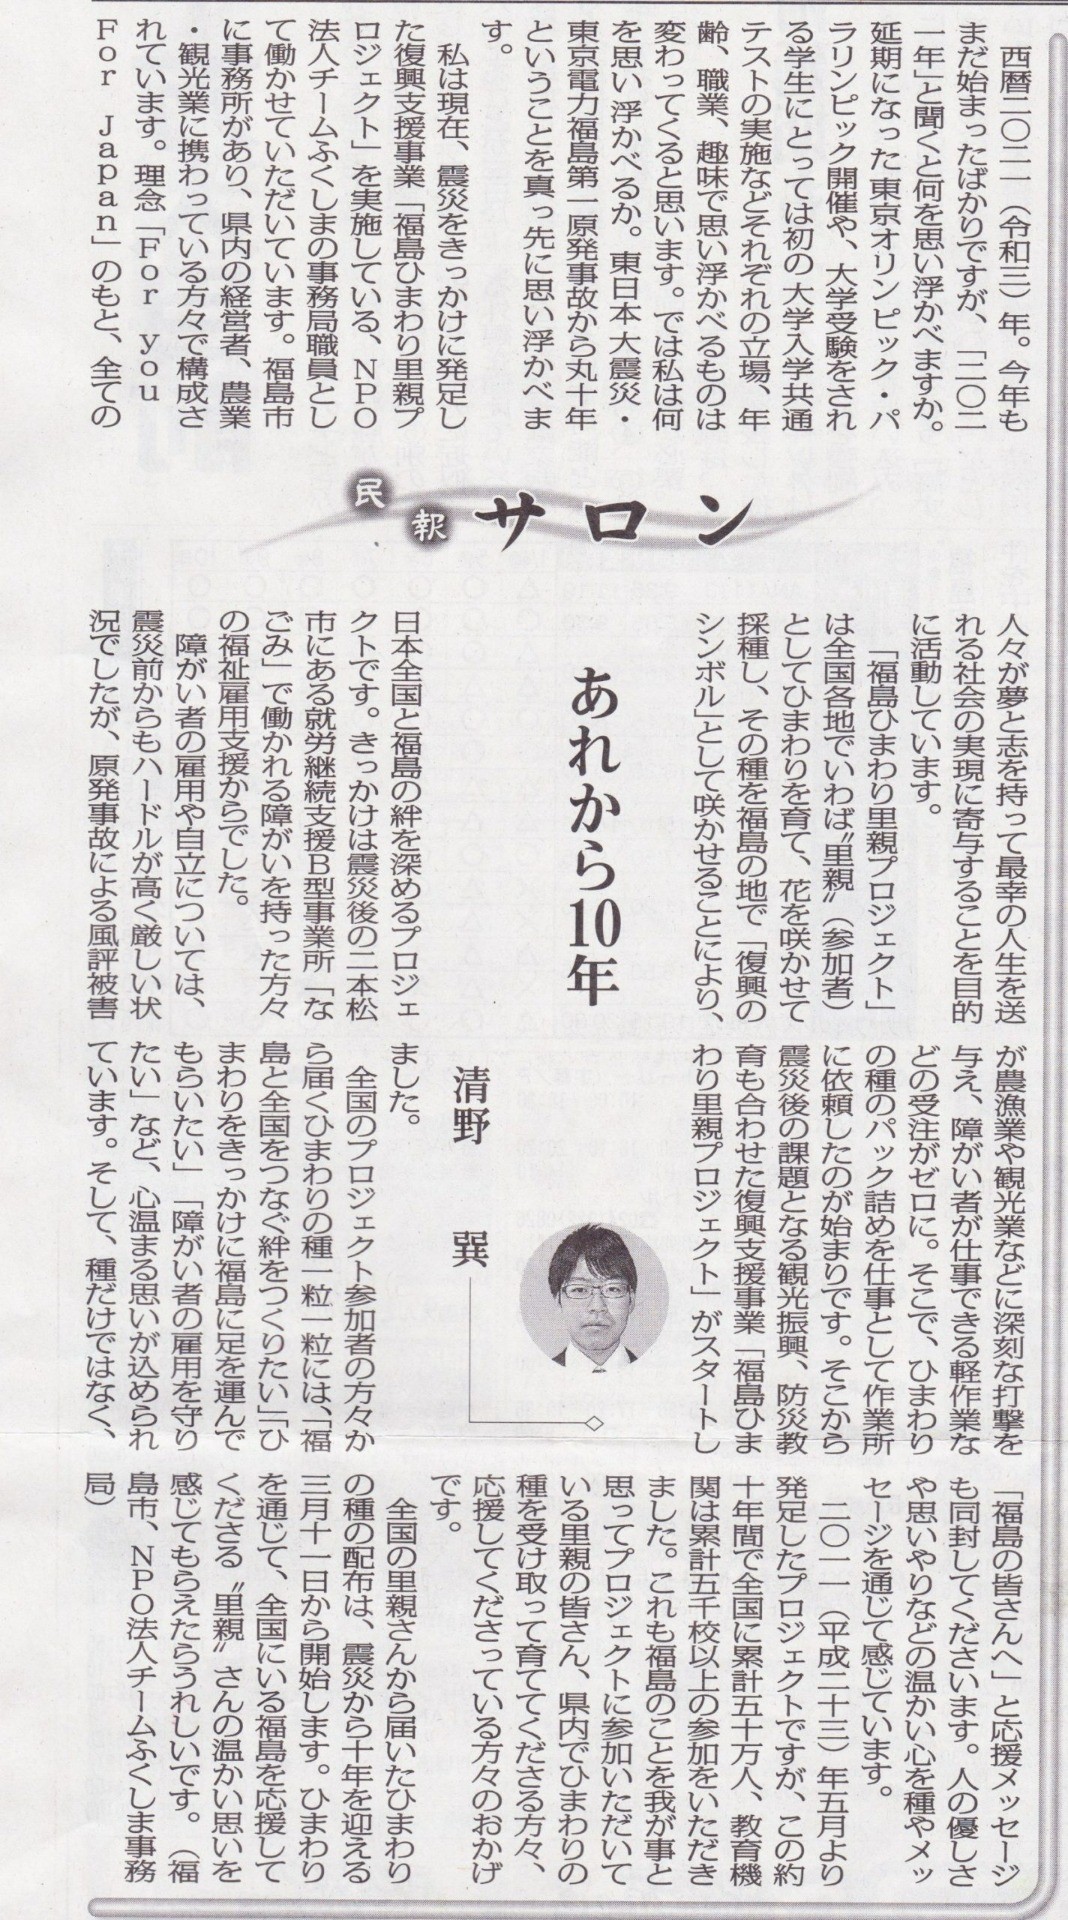 西暦二〇二一（令和三）年。今年も
まだ始まったばかりですが、「二〇二
一年」と聞くと何を思い浮かべますか。
延期になった東京オリンピック・パ
ラリンピック開催や、大学受験をされ
る学生にとっては初の大学入学共通
テストの実施などそれぞれの立場、年
齢、職業、趣味で思い浮かべるものは
変わってくると思います。では私は何
を思い浮かべるか。東日本大震災・
東京電力福島第一原発事故から丸十年
ということを真っ先に思い浮かべま
す。
私は現在、震災をきっかけに発足し
た復興支援事業「福島ひまわり里親プ
ロジェクト」を実施している、NPO
法人チームふくしまの事務局職員とし
て働かせていただいています。福島市
に事務所があり、県内の経営者、農業
・観光業に携わっている方々で構成さ
れています。理念「For you
For Japan」のもと、全ての
民報サロン
人々が夢と志を持って最幸の人生を送
れる社会の実現に寄与することを目的
に活動しています。
「福島ひまわり里親プロジェクト」
は全国各地でいわば〝里親〟（参加者）
としてひまわりを育て、花を咲かせて
採種し、その種を福島の地で「復興の
シンボル」として咲かせることにより、
あれから10年
日本全国と福島の絆を深めるプロジェ
クトです。きっかけは震災後の二本松
市にある就労継続支援B型事業所「な
ごみ」で働かれる障がいを持った方々
の福祉雇用支援からでした。
障がい者の雇用や自立については、
震災前からもハードルが高く厳しい状
況でしたが、原発事故による風評被害
が農漁業や観光業などに深刻な打撃を
与え、障がい者が仕事できる軽作業な
どの受注がゼロに。そこで、ひまわり
の種のパック詰めを仕事として作業所
に依頼したのが始まりです。そこから
震災後の課題となる観光振興、防災教
育も合わせた復興支援事業「福島ひま
わり里親プロジェクト」がスタートし
清野 巽
ました。
全国のプロジェクト参加者の方々か
ら届くひまわりの種一粒一粒には、「福
島と全国をつなぐ絆をつくりたい」「ひ
まわりをきっかけに福島に足を運んで
もらいたい」「障がい者の雇用を守り
たい」など、心温まる思いが込められ
ています。そして、種だけではなく、
「福島の皆さんへ」と応援メッセージ
も同封してくださいます。人の優しさ
や思いやりなどの温かい心を種やメッ
セージを通じて感じています。
二〇一一（平成二十三）年五月より
発足したプロジェクトですが、この約
十年間で全国に累計五十万人、教育機
関は累計五千校以上の参加をいただき
ました。これも福島のことを我が事と
思ってプロジェクトに参加いただいて
いる里親の皆さん、県内でひまわりの
種を受け取って育ててくださる方々、
応援してくださっている方々のおかげ
です。
全国の里親さんから届いたひまわり
の種の配布は、震災から十年を迎える
三月十一日から開始します。ひまわり
を通じて、全国にいる福島を応援して
くださる〝里親〟さんの温かい思いを
感じてもらえたらうれしいです。（福
島市、NPO法人チームふくしま事務
局）